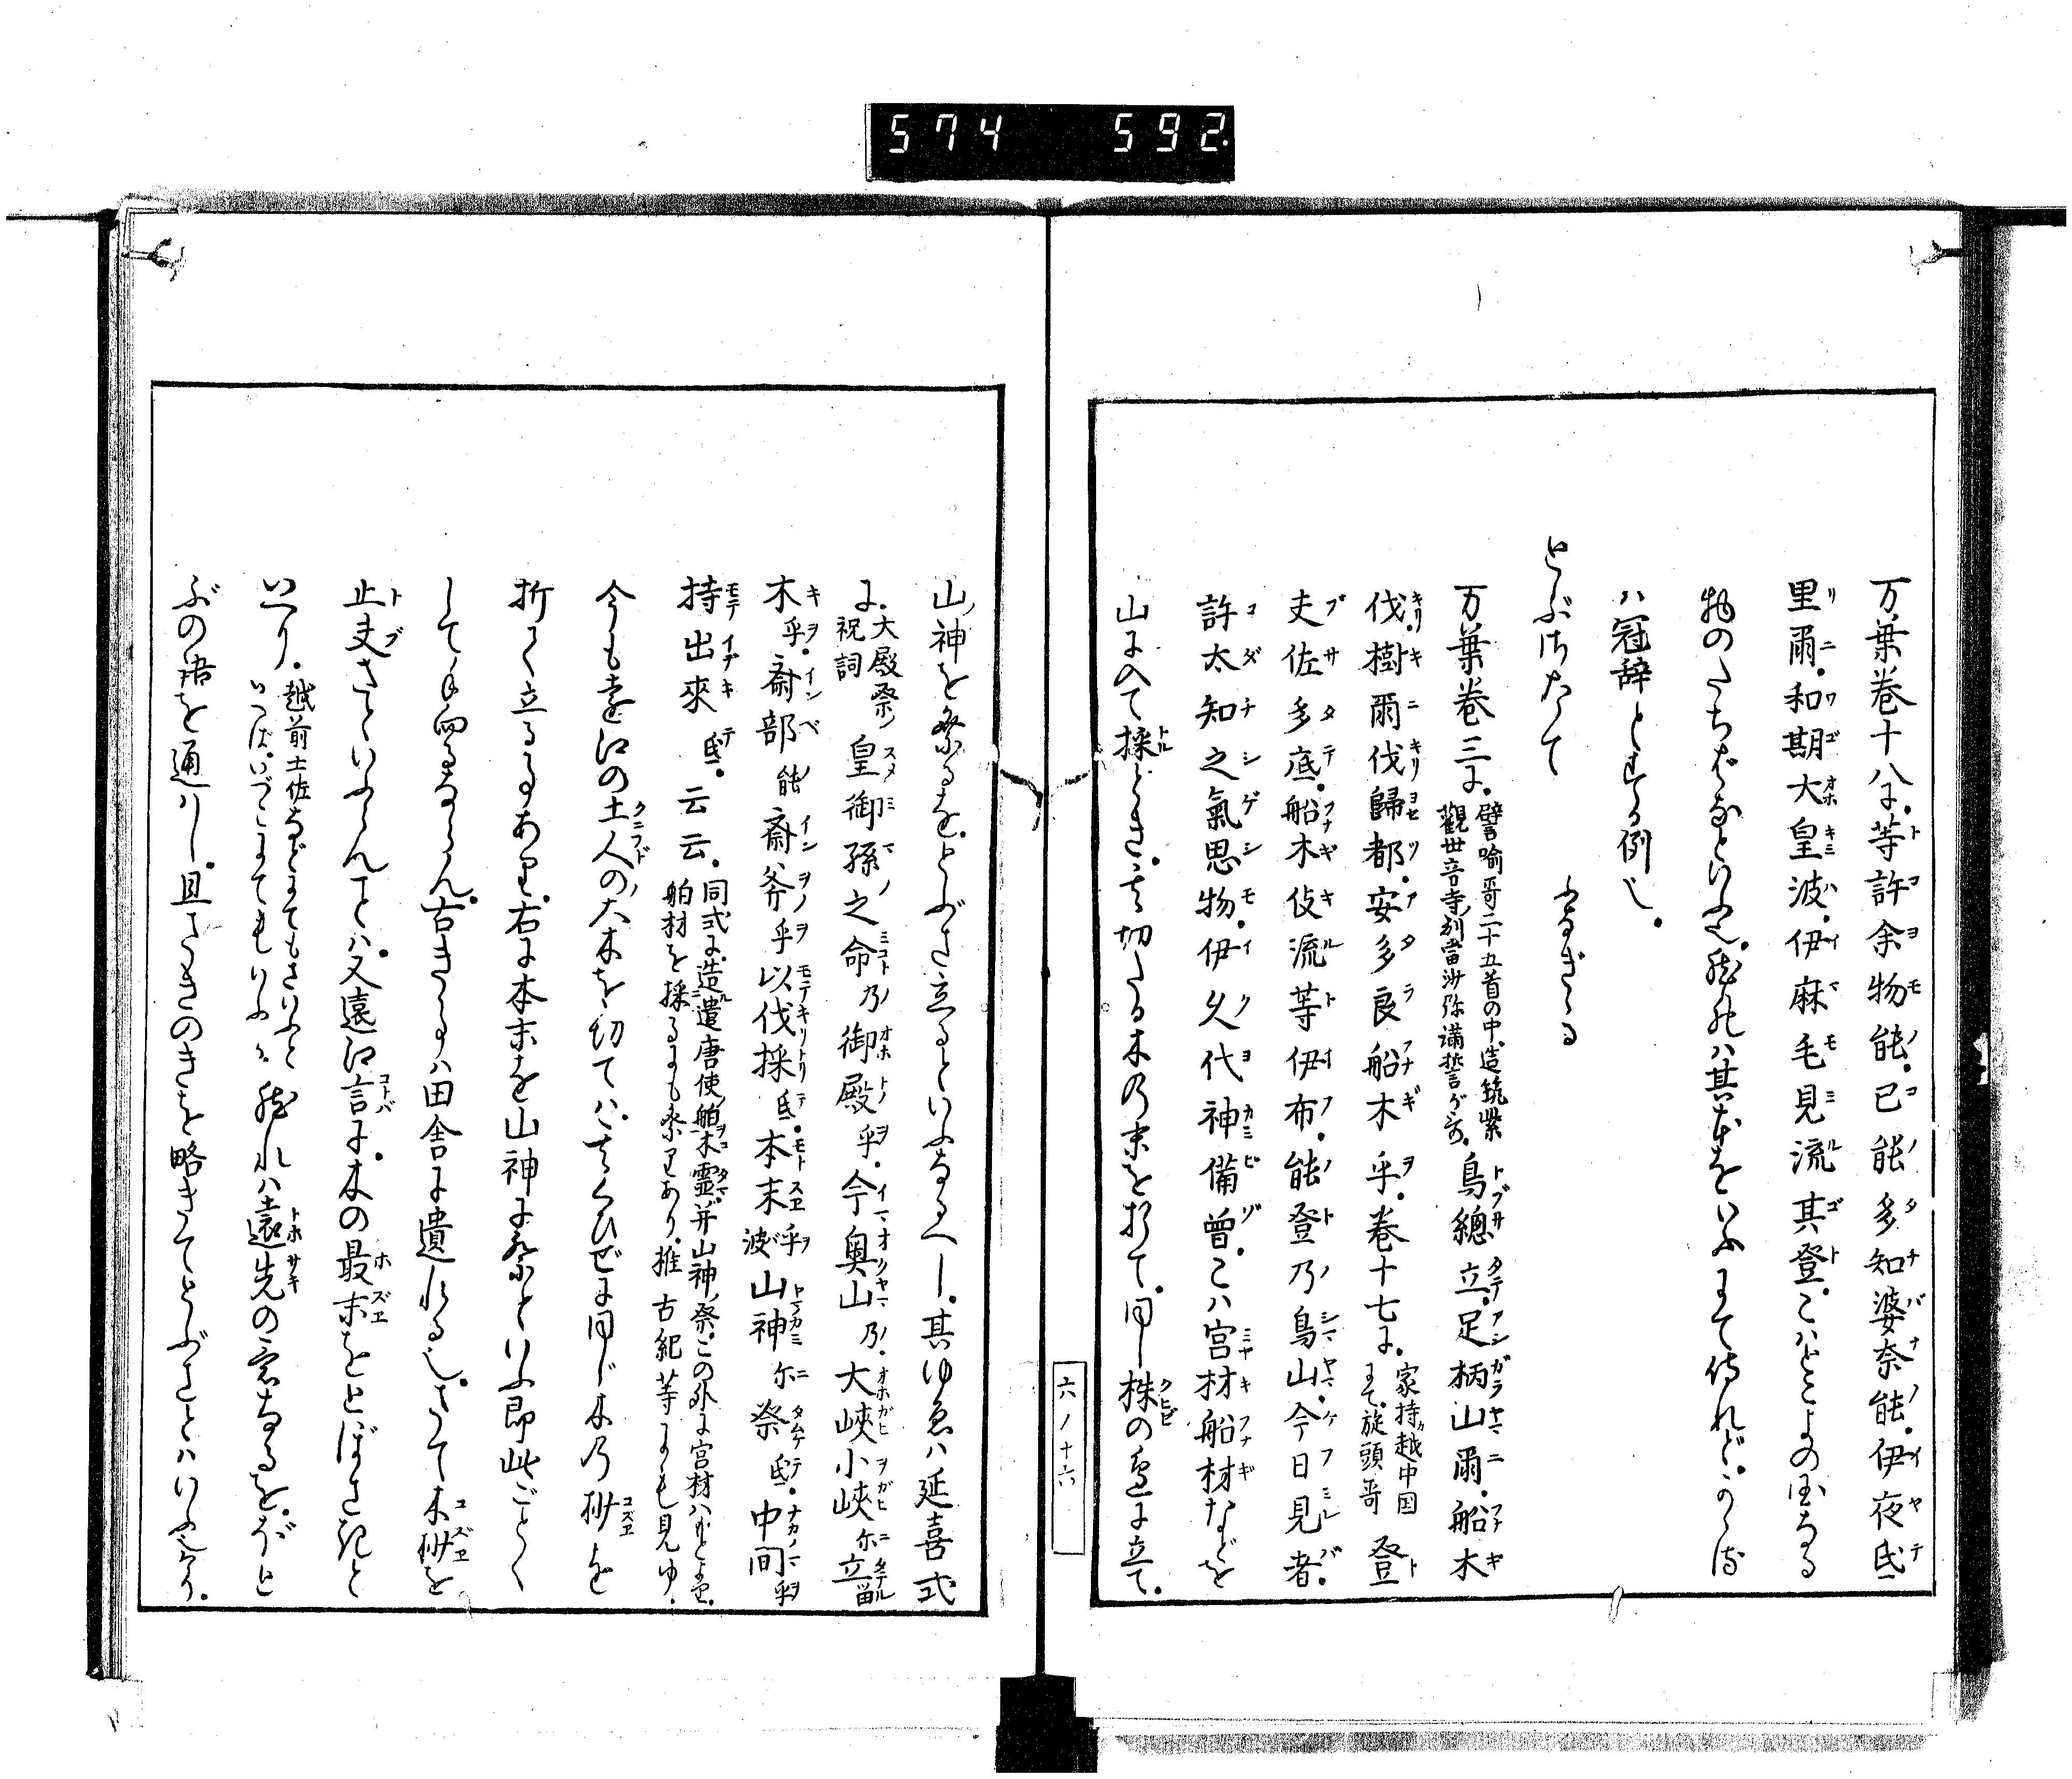 574 592.
万葉巻十八に等許余物能己能多知婆奈能伊夜氐
里爾和期大皇波伊麻毛見流其登こはとこよの国なる
物のたちばなといふ也然れは其本をいふまて侍れど
ハ冠辞とする例也
とぶさたて ふなぎきる
万葉巻三に譬喩哥二十五首の中造筑紫観世音寺別當沙弥満誓が哥鳥總立足柄山爾船木
伐樹爾伐歸都安多良船木乎巻十七に家持が越中国にて旋頭哥登
夫佐多底船木伎流等伊布能登乃島山今日見者
許太知之氣思物伊久代神備曽こハ宮材船材などを
山に入て採ときその切たる木乃末を折て同し株の邊に立て
六ノ十六
山ノ神を祭るをとぶさ立るといふなるへし其ゆゑハ延喜式
に大殿祭ノ祝詞皇御孫之命乃御殿乎今奥山乃大峽小峽尓立留
木乎斎部能斎斧乎以伐採氐本末乎波山神尓祭氐中間乎
持出來氐云云同式に造遣唐使舶木靈并山神ノ祭この外に宮材ハもとより舶材を採るにも祭りあり推古紀等にも見ゆ
今も遠江の土人の大木を切てハそのくひぜに同じ木乃梢を
折て立るゝあり右に本末を山神に祭といふ即此ごとく
して手向るならん古きゝハ田舎に遺れる也さて木梢を
止夫さといふらんことハ又遠江言に木の最末をとぼさきと
いへり越前土佐などにてもさいふといはばいづこにてもいふか然れハ遠先の意なるをぼと
ぶの語を通ハし且さきのきを略きてとぶさとハいふ也けり